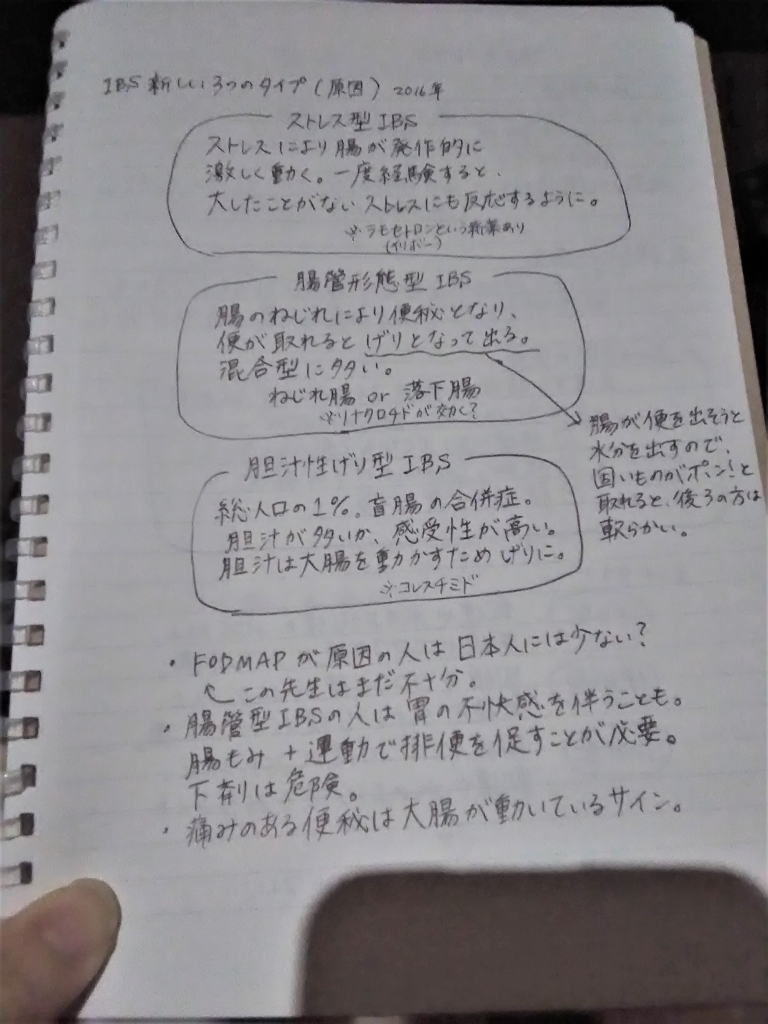 IBS 新しい3つのタイプ(原因) 2016年
ストレス型 IBS
ストレスにより腸が発作的に
激しく動く。一度経験すると、
大したことがないストレスにも反応するように。
※ラモセトロンという新薬あり
(イリボー)
腸管形態型 IBS
腸のねじれにより便秘となり、
便が取れるとげりとなって出る。
混合型に多い。
ねじれ腸 or 落下腸
※リナクロチドが効く?
腸が便を出そうと
水分を出すので、
固いものがポン!と
取れると、後ろの方は
軟らかい。
胆汁性げり型 IBS
総人口の1%。盲腸の合併症。
胆汁が多いか、感受性が高い。
胆汁は大腸を動かすためげりに。
※コレスチミド
・FODMAPが原因の人は日本人には少ない?
この先生はまだ不十分。
・腸管型IBSの人は胃の不快感を伴うことも。
腸もみ+運動で排便を促すことが必要。
下剤は危険。
・痛みのある便秘は大腸が動いているサイン。